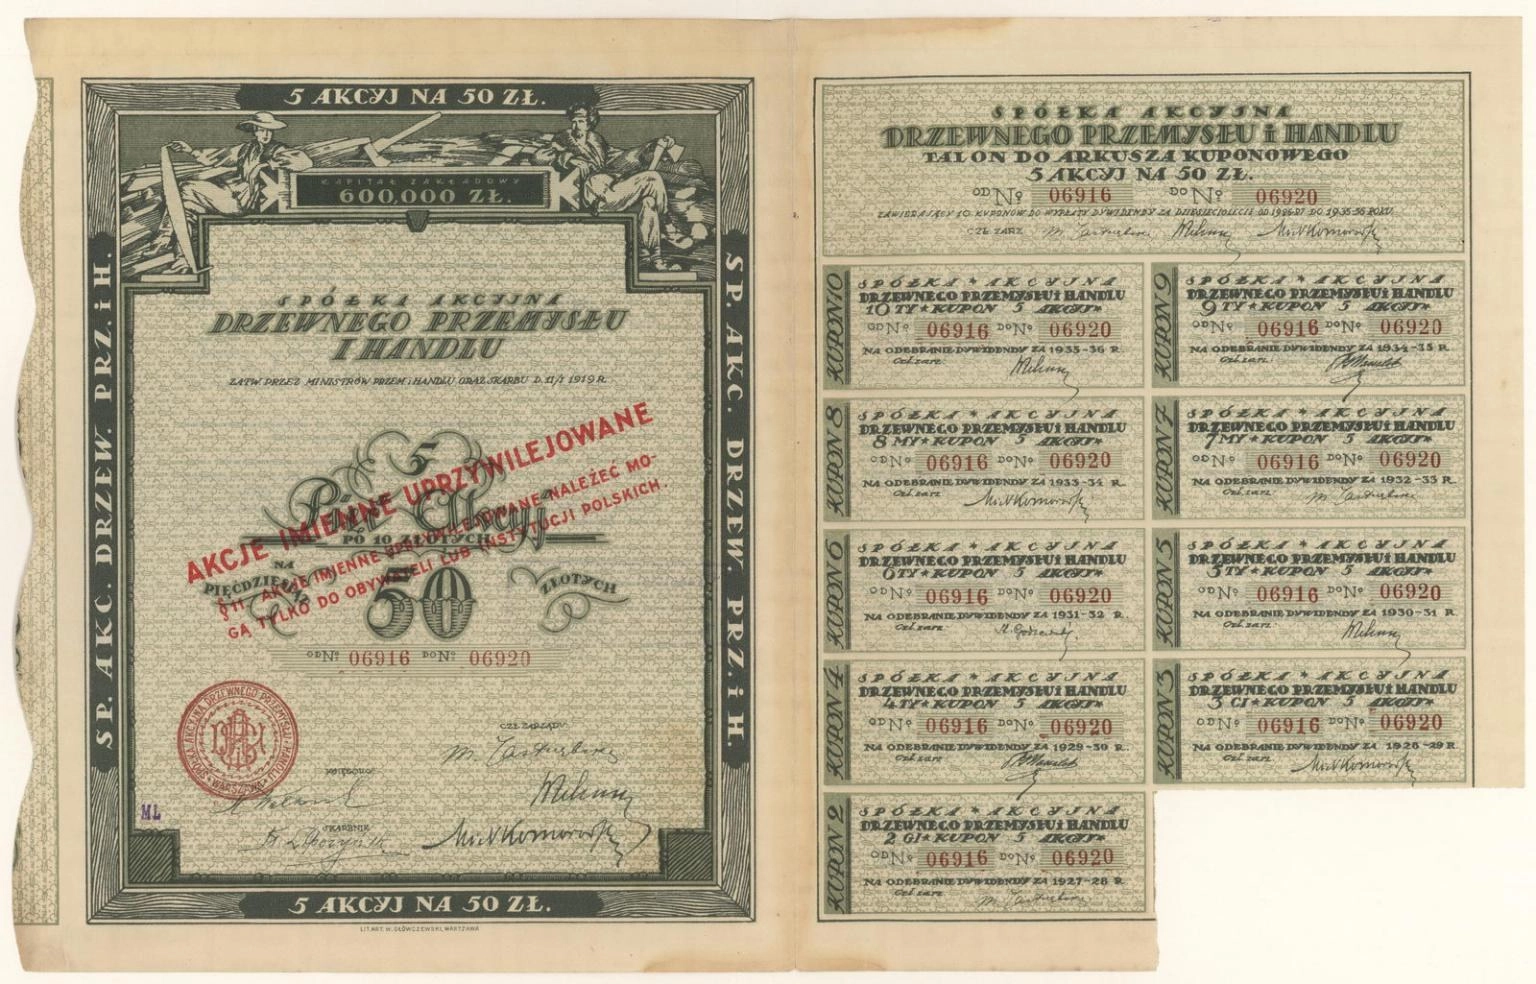 5 AKCYJ NA 50 ZŁ.
KAPITAŁ ZAKŁADOWY
600,000 ZŁ.
SP. AKC. DRZEW. PRZ. i H.
SP. AKC. DRZEW. PRZ. i H.
SPÓŁKA AKCYJNA
DRZEWNEGO PRZEMYSŁU
I HANDLU
ZATW. PRZEZ MINISTRÓW PRZEM. i HANDLU ORAZ SKARBU D. 11/I 1919 R.
5
Pięć Akcyj
PO 10 ZŁOTYCH
NA
PIĘĆDZIESIĄT
50
ZŁOTYCH
AKCJE IMIENNE UPRZYWILEJOWANE
§ 11. AKCJE IMIENNE UPRZYWILEJOWANE NALEŻEĆ MO-
GĄ TYLKO DO OBYWATELI LUB INSTYTUCJI POLSKICH.
OD No 06916 DO No 06920
SPÓŁKA AKCYJNA DRZEWNEGO PRZEMYSŁU i HANDLU
WARSZAWA
CZŁ. ZARZĄDU:
KSIĘGOWY
SKARBNIK
ML
5 AKCYJ NA 50 ZŁ.
LIT. ART. W. GŁÓWCZEWSKI, WARSZAWA
SPÓŁKA AKCYJNA
DRZEWNEGO PRZEMYSŁU i HANDLU
TALON DO ARKUSZA KUPONOWEGO
5 AKCYJ NA 50 ZŁ.
OD No 06916 DO No 06920
ZAWIERAJĄCY 10 KUPONÓW DO WYPŁATY DYWIDENDY ZA DZIESIĘCIOLECIE OD 1926-27 DO 1935-36 ROKU
CZŁ. ZARZ.
KUPON 10
SPÓŁKA * AKCYJNA
DRZEWNEGO PRZEMYSŁU i HANDLU
10 TY * KUPON 5 AKCYJ *
OD No 06916 DO No 06920
NA ODEBRANIE DYWIDENDY ZA 1935-36 R.
Czł. zarz:
KUPON 9
SPÓŁKA * AKCYJNA
DRZEWNEGO PRZEMYSŁU i HANDLU
9 TY * KUPON 5 AKCYJ *
OD No 06916 DO No 06920
NA ODEBRANIE DYWIDENDY ZA 1934-35 R.
Czł. zarz:
KUPON 8
SPÓŁKA * AKCYJNA
DRZEWNEGO PRZEMYSŁU i HANDLU
8 MY * KUPON 5 AKCYJ *
OD No 06916 DO No 06920
NA ODEBRANIE DYWIDENDY ZA 1933-34 R.
Czł. zarz:
KUPON 7
SPÓŁKA * AKCYJNA
DRZEWNEGO PRZEMYSŁU i HANDLU
7 MY * KUPON 5 AKCYJ *
OD No 06916 DO No 06920
NA ODEBRANIE DYWIDENDY ZA 1932-33 R.
Czł. zarz:
KUPON 6
SPÓŁKA * AKCYJNA
DRZEWNEGO PRZEMYSŁU i HANDLU
6 TY * KUPON 5 AKCYJ *
OD No 06916 DO No 06920
NA ODEBRANIE DYWIDENDY ZA 1931-32 R.
Czł. zarz:
KUPON 5
SPÓŁKA * AKCYJNA
DRZEWNEGO PRZEMYSŁU i HANDLU
5 TY * KUPON 5 AKCYJ *
OD No 06916 DO No 06920
NA ODEBRANIE DYWIDENDY ZA 1930-31 R.
Czł. zarz:
KUPON 4
SPÓŁKA * AKCYJNA
DRZEWNEGO PRZEMYSŁU i HANDLU
4 TY * KUPON 5 AKCYJ *
OD No 06916 DO No 06920
NA ODEBRANIE DYWIDENDY ZA 1929-30 R.
Czł. zarz:
KUPON 3
SPÓŁKA * AKCYJNA
DRZEWNEGO PRZEMYSŁU i HANDLU
3 CI * KUPON 5 AKCYJ *
OD No 06916 DO No 06920
NA ODEBRANIE DYWIDENDY ZA 1928-29 R.
Czł. zarz:
KUPON 2
SPÓŁKA * AKCYJNA
DRZEWNEGO PRZEMYSŁU i HANDLU
2 GI * KUPON 5 AKCYJ *
OD No 06916 DO No 06920
NA ODEBRANIE DYWIDENDY ZA 1927-28 R.
Czł. zarz: